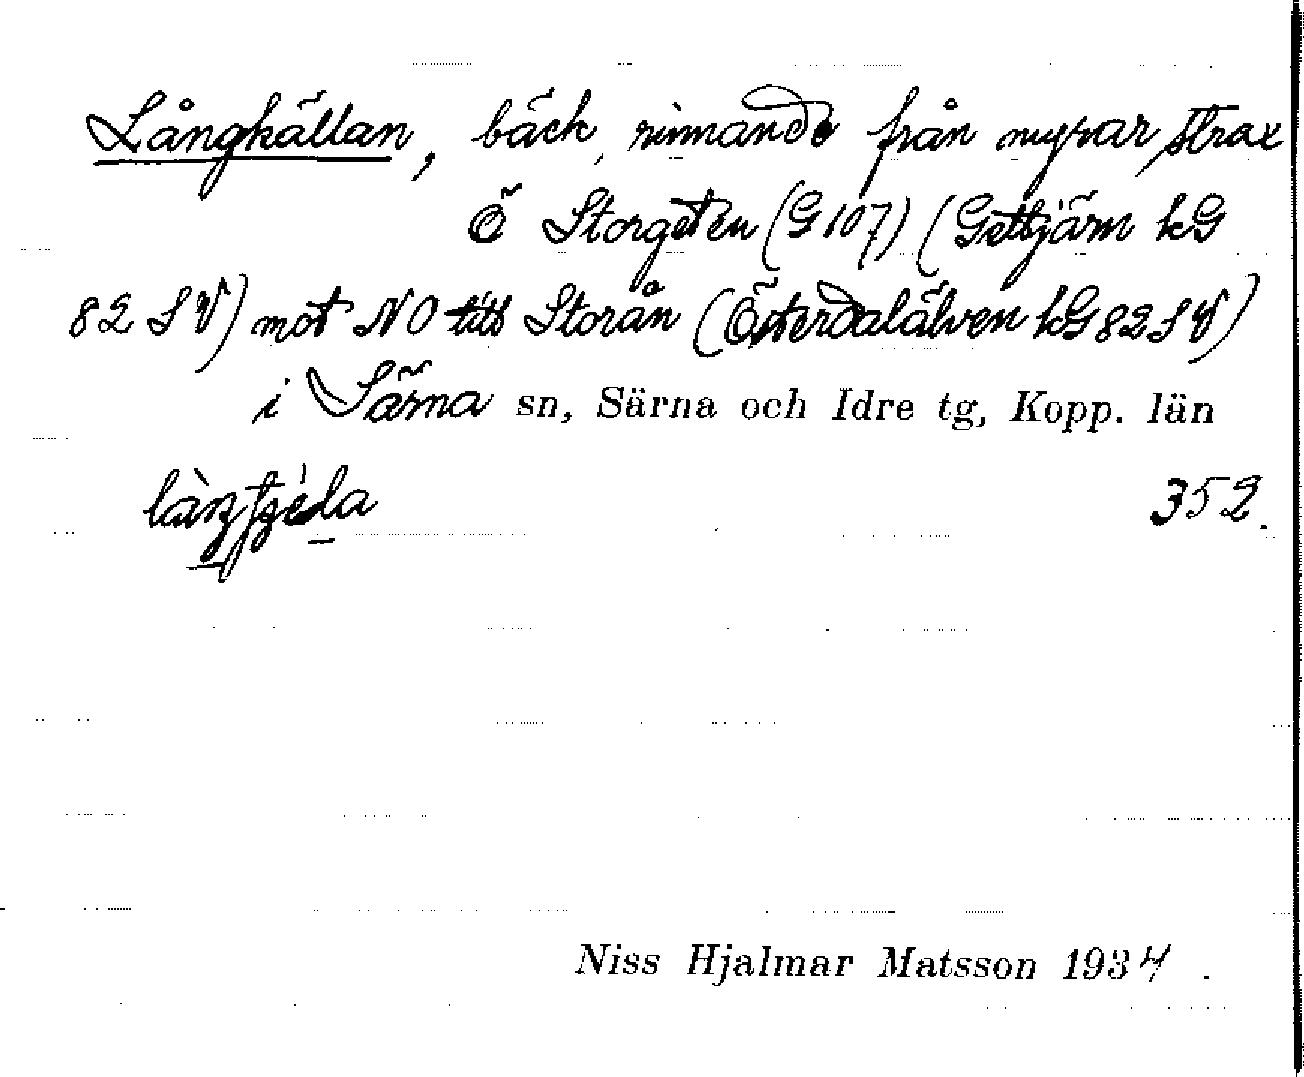 Långkällan, bäck, rinnande från myrar strax
Ö Storgeten (G 107) (Gettjärn kG
82 SV) mot NO till Storån (Österdalälven kG 82 SV)
i Särna sn, Särna och Idre tg, Kopp. län
352.
Niss Hjalmar Matsson 1934.